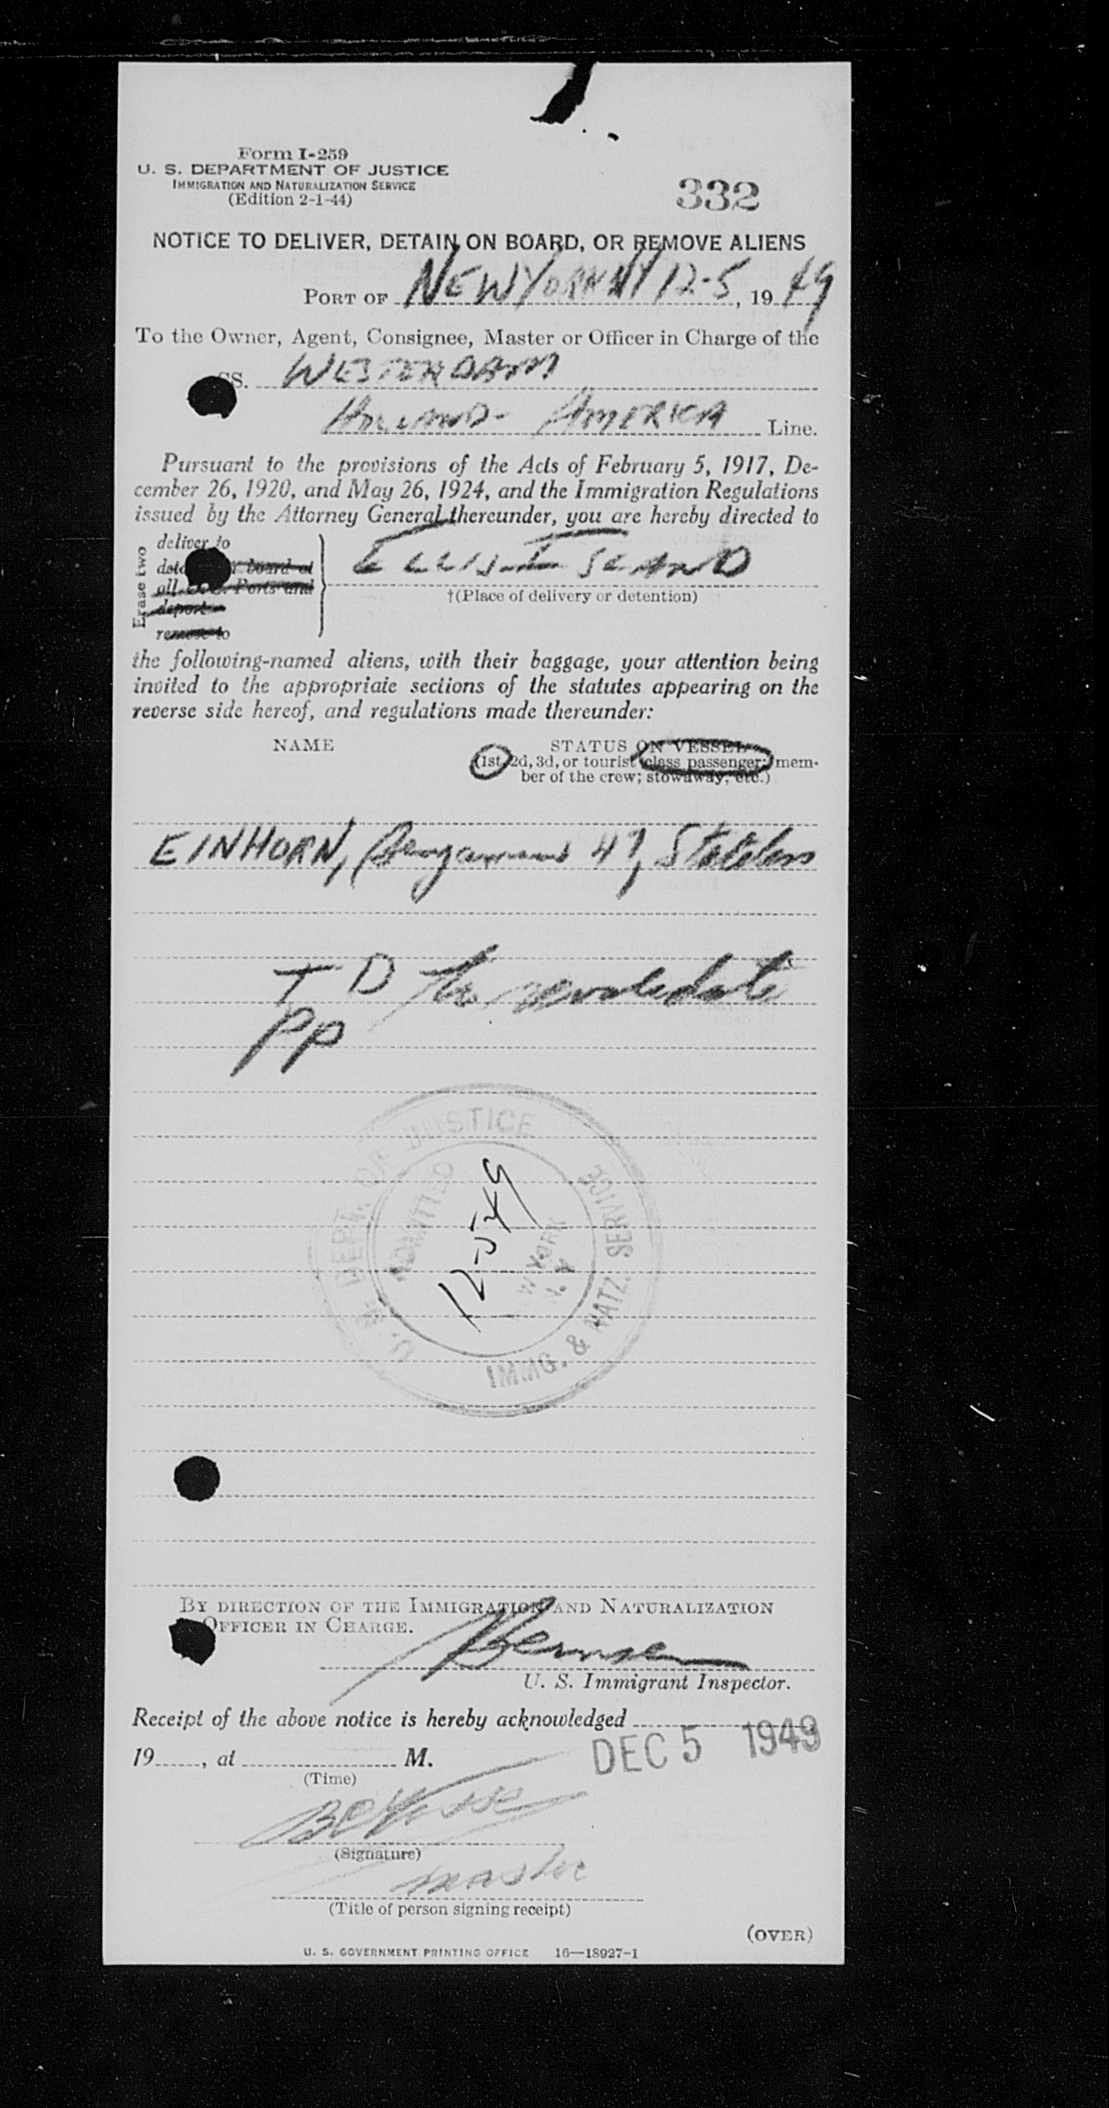 Form I-259
U. S. DEPARTMENT OF JUSTICE
IMMIGRATION AND NATURALIZATION SERVICE
(Edition 2-1-44)
332
NOTICE TO DELIVER, DETAIN ON BOARD, OR REMOVE ALIENS
PORT OF NEW YORK NY 12-5, 1949
To the Owner, Agent, Consignee, Master or Officer in Charge of the
SS. WESTERDAM
HOLLAND-AMERICA Line.
Pursuant to the provisions of the Acts of February 5, 1917, De-
cember 26, 1920, and May 26, 1924, and the Immigration Regulations
issued by the Attorney General thereunder, you are hereby directed to
Erase two
deliver to
board at
all Ports and
deport
remove to
ELLIS ISLAND
†(Place of delivery or detention)
the following-named aliens, with their baggage, your attention being
invited to the appropriate sections of the statutes appearing on the
reverse side hereof, and regulations made thereunder:
NAME
STATUS ON VESSEL
(1st, 2d, 3d, or tourist class passenger; mem-
ber of the crew; stowaway; etc.)
EINHORN, Benjamin 47, Stateless
T D
PP
U. S. DEPT. OF JUSTICE
ADMITTED
12-5-49
NEW YORK
N. Y.
IMMG. & NATZ. SERVICE
BY DIRECTION OF THE IMMIGRATION AND NATURALIZATION
OFFICER IN CHARGE.
U. S. Immigrant Inspector.
Receipt of the above notice is hereby acknowledged
DEC 5 1949
19......, at .................. M.
(Time)
(Signature)
master
(Title of person signing receipt)
(OVER)
U. S. GOVERNMENT PRINTING OFFICE 16—18027-1